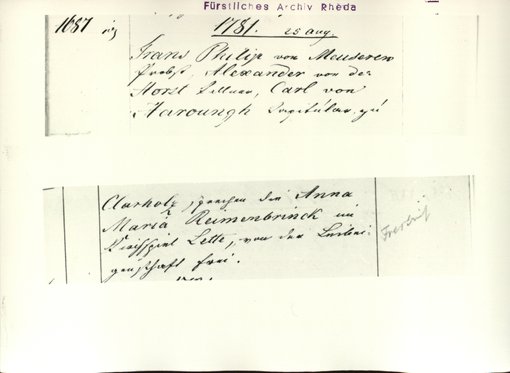 Fürstliches Archiv Rheda
1687
1781. 25 aug.
Franz Philip von Meuseren
Probst, Alexander von der
Horst Kellner, Carl von
Haroungh Capitular, zu
Clarholz sprechen die Anna
Maria Reimenbrinck im
Kirchspiel Lette, von der Leibei-
genschaft frei.
Freibrief